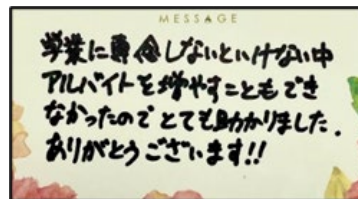 MESSAGE
学業に専念しないといけない中
アルバイトを増やすこともでき
なかったのでとても助かりました.
ありがとうございます!!